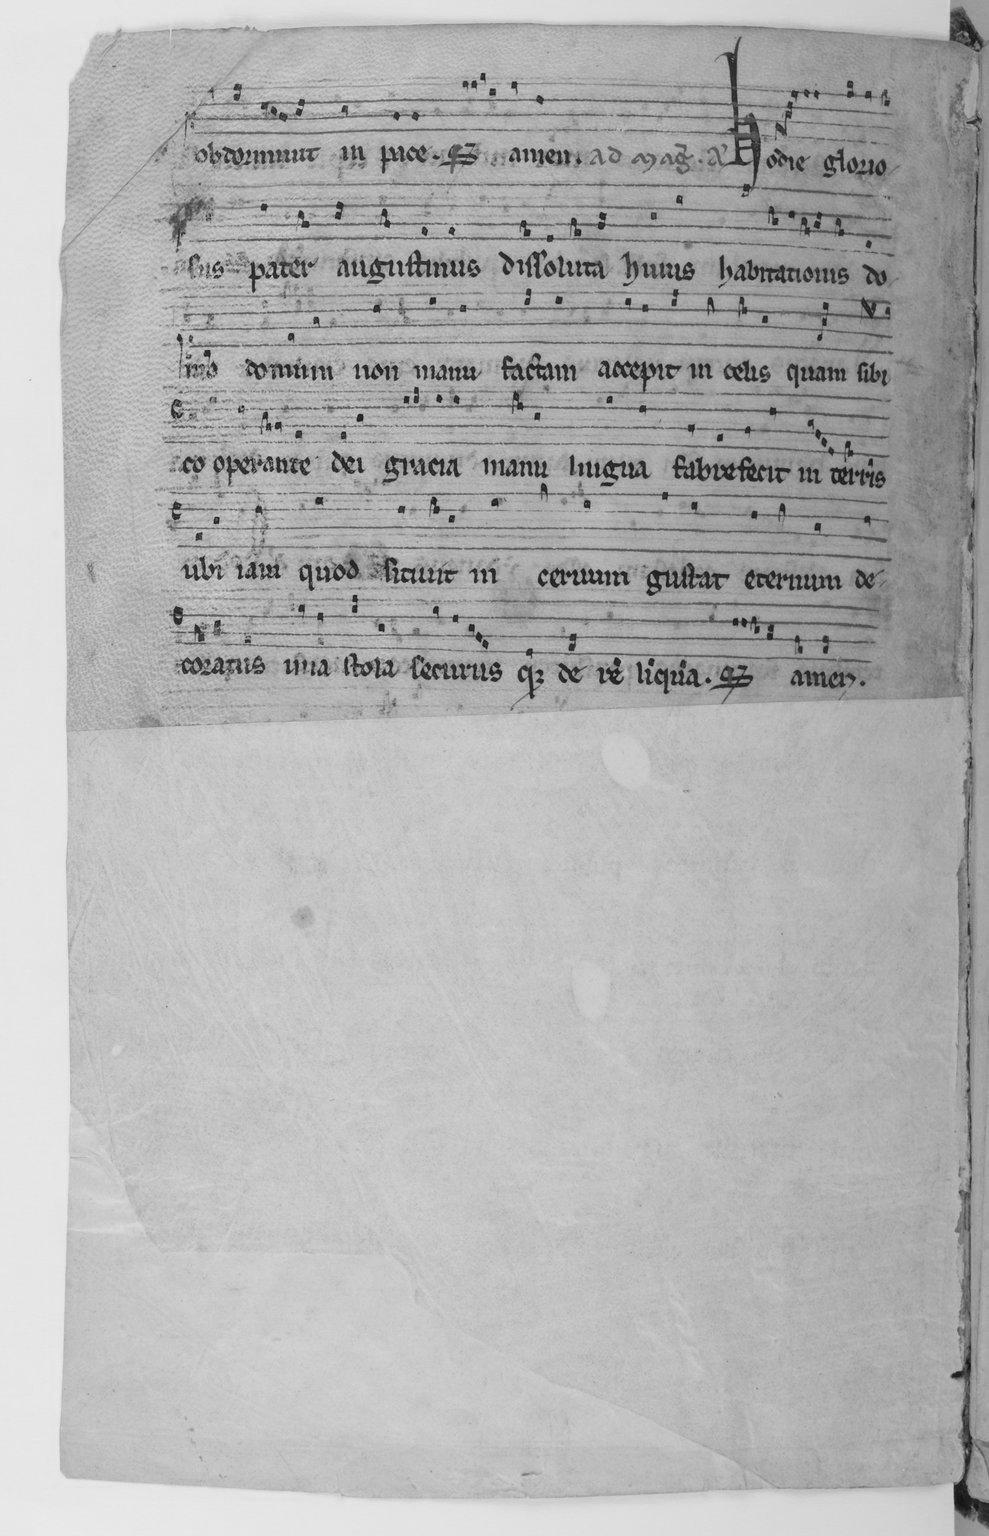 obdormiuit in pace. amen. ad mag. a Hodie glorio
sus pater augustinus dissoluta huius habitationis do
mo domum non manu factam accepit in celis quam sibi
co operante dei gracia manu lingua fabrefecit in terris
ubi iam quod sitiuit in ternum gustat eternum de
coratus una stola securus q; de re liqua. amen.